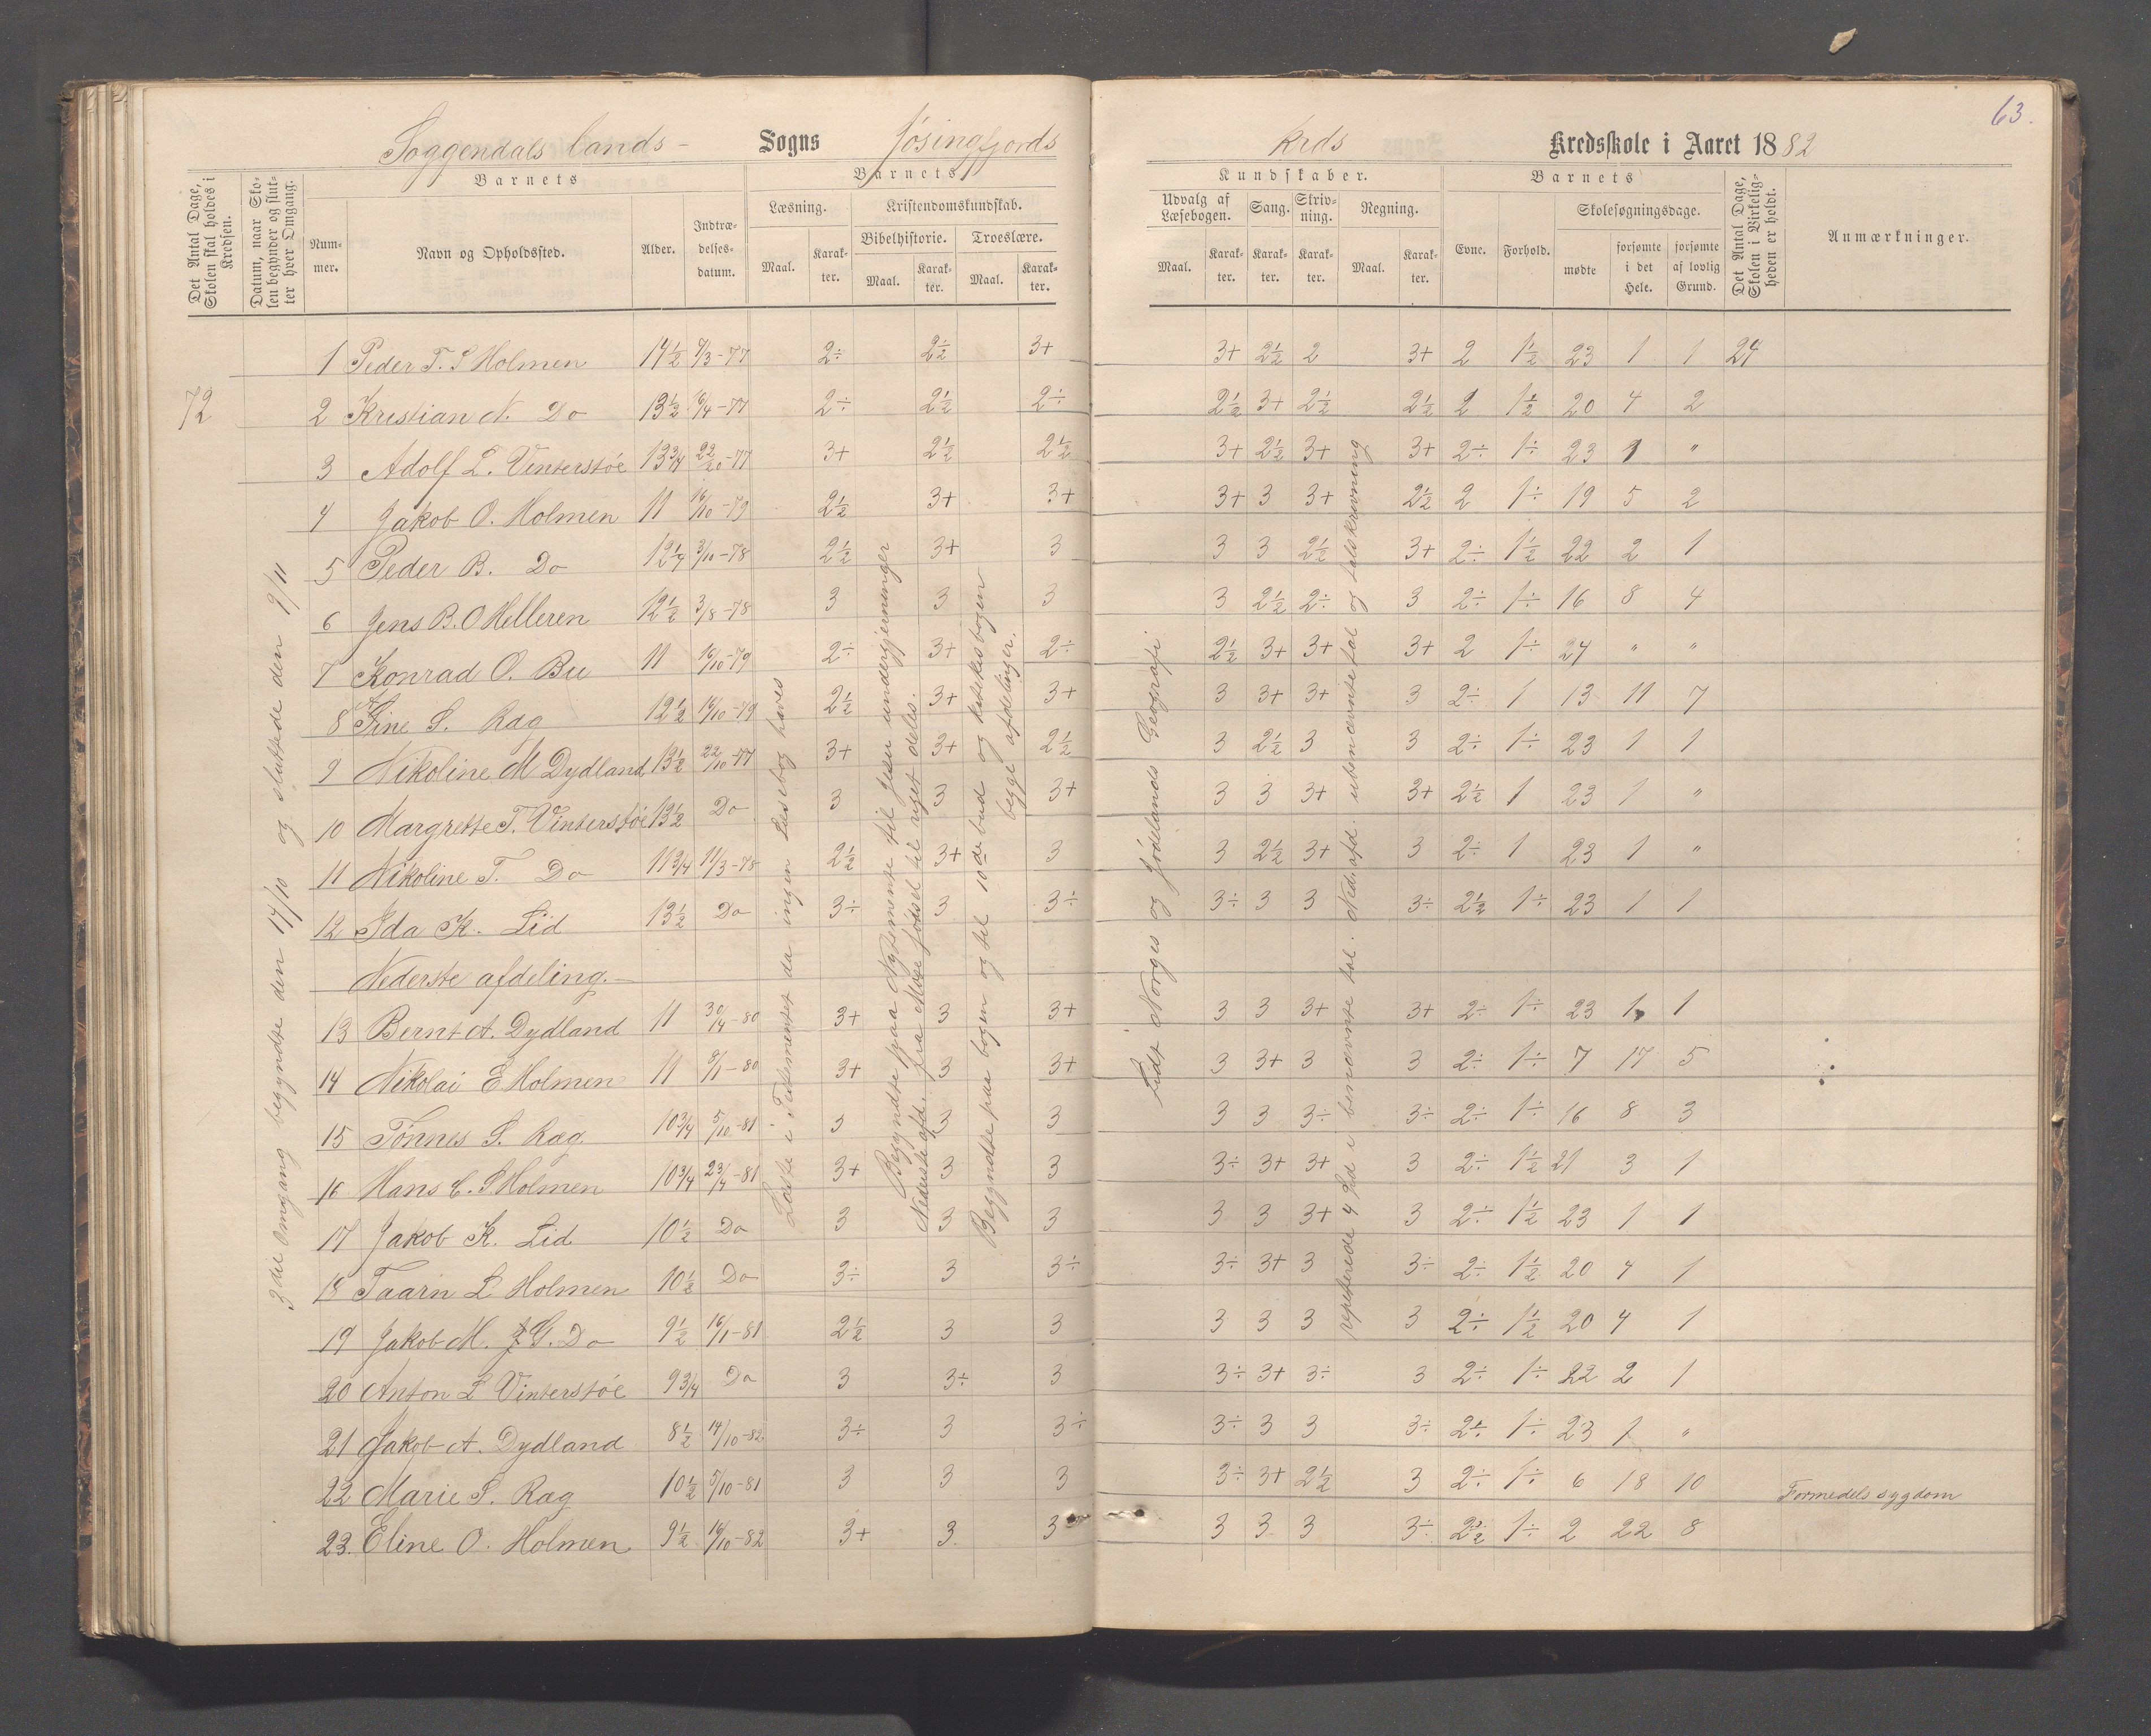 63.
Soggendals lands- Sogns Jøsingfjords Kreds Kredsskole i Aaret 1882
Det Antal Dage, Skolen skal holdes i Kredsen.
Datum, naar Skolen begynder og slutter hver Omgang.
Barnets
Nummer.
Navn og Opholdssted.
Alder.
Indtrædelses-datum.
Barnets
Læsning.
Maal.
Karakter.
Kristendomskundskab.
Bibelhistorie.
Maal.
Karakter.
Troeslære.
Maal.
Karakter.
Kundskaber.
Udvalg af Læsebogen.
Maal.
Karakter.
Sang.
Karakter.
Skrivning.
Karakter.
Regning.
Maal.
Karakter.
Barnets
Evne.
Forhold.
Skolesøgningsdage.
mødte
forsømte i det Hele.
forsømte af lovlig Grund.
Det Antal Dage, Skolen i Virkeligheden er holdt.
Anmærkninger.
72
3die Omgang begyndte den 14/10 og sluttede den 9/11
1 Peder T. S Holmen 14½ 9/3-77 2÷ 2½ 3+ 3+ 2½ 2 3+ 2 1½ 23 1 1 24
2 Kristian N. Do 13½ 16/4-77 2÷ 2½ 2÷ 2½ 3+ 2½ 2½ 2 1½ 20 4 2
3 Adolf L. Vinterstøe 13¾ 22/10-77 3+ 2½ 2½ 3+ 2½ 3+ 3+ 2÷ 1÷ 23 1 "
4 Jakob O. Holmen 11 16/10-79 2½ 3+ 3+ 3+ 3 3+ 2½ 2 1÷ 19 5 2
5 Peder B. Do 12¼ 3/10-78 2½ 3+ 3 3 3 2½ 3+ 2÷ 1½ 22 2 1
6 Jens B. O Helleren 12½ 3/8-78 3 3 3 3 2½ 2÷ 3 2÷ 1÷ 16 8 4
7 Konrad O. Bu 11 16/10-79 2÷ 3+ 2÷ 2½ 3+ 3+ 3+ 2 1÷ 24 " "
8 Sine S. Ræg 12½ 16/10-79 2½ 3+ 3+ 3 3+ 3+ 3 2÷ 1 13 11 7
9 Nikoline M Dydland 13½ 22/10-77 3+ 3+ 2½ 3 2½ 3 3 2÷ 1÷ 23 1 1
10 Margrette T. Vinterstøe 13½ Do 3 3 3+ 3 3 3+ 3+ 2½ 1 23 1 "
11 Nikoline T. Do 11¾ 11/3-78 2½ 3+ 3 3 2½ 3+ 3 2÷ 1 23 1 "
12 Ida K. Lid 13½ Do 3÷ 3 3÷ 3÷ 3 3 3÷ 2½ 1÷ 23 1 1
Nederste afdeling.
13 Bernt A. Dydland 11 30/4-80 3+ 3 3+ 3 3 3+ 3+ 2÷ 1÷ 23 1 1
14 Nikolai E Holmen 11 9/1-80 3+ 3 3+ 3 3+ 3 3 2÷ 1÷ 7 17 5
15 Tønnes S. Ræg 10¾ 5/10-81 3 3 3 3 3 3÷ 3÷ 2÷ 1÷ 16 8 3
16 Hans C. S Holmen 10¾ 23/4-81 3+ 3 3 3÷ 3+ 3+ 3 2÷ 1½ 21 3 1
17 Jakob K. Lid 10½ Do 3 3 3 3 3 3+ 3 2÷ 1½ 23 1 1
18 Taarn L Holmen 10½ Do 3÷ 3 3÷ 3÷ 3+ 3 3÷ 2÷ 1½ 20 4 1
19 Jakob M. G. Do 9½ 16/1-81 2½ 3 3 3 3 3 3 2÷ 1½ 20 4 1
20 Anton L Vinterstøe 9¾ Do 3 3÷ 3 3÷ 3+ 3÷ 3 2÷ 1÷ 22 2 1
21 Jakob A. Dydland 8½ 14/10-82 3÷ 3 3÷ 3÷ 3 3 3÷ 2÷ 1÷ 23 1 "
22 Marie S. Ræg 10½ 5/10-81 3 3 3 3÷ 3+ 2½ 3 2÷ 1÷ 6 18 10 Formedels sygdom
23. Eline O. Holmen 9½ 14/10-82 3+ 3 3 3 3 3 3÷ 2½ 1÷ 2 22 8
Læste i Testamentet da ingen Læsebog haves
Begyndte paa Nytestamente til Jesu undergjerninger
Nederste afd. fra Mose fødsel til riget deles.
Begyndte paa bogen og til 10de bud og Katekisbogen
begge afdelinger.
Lidt Norges og Jødelands Geografi
repeterede 4 Spd i benævnte tal. Ned. afd. ubenævnte tal og talskrivning